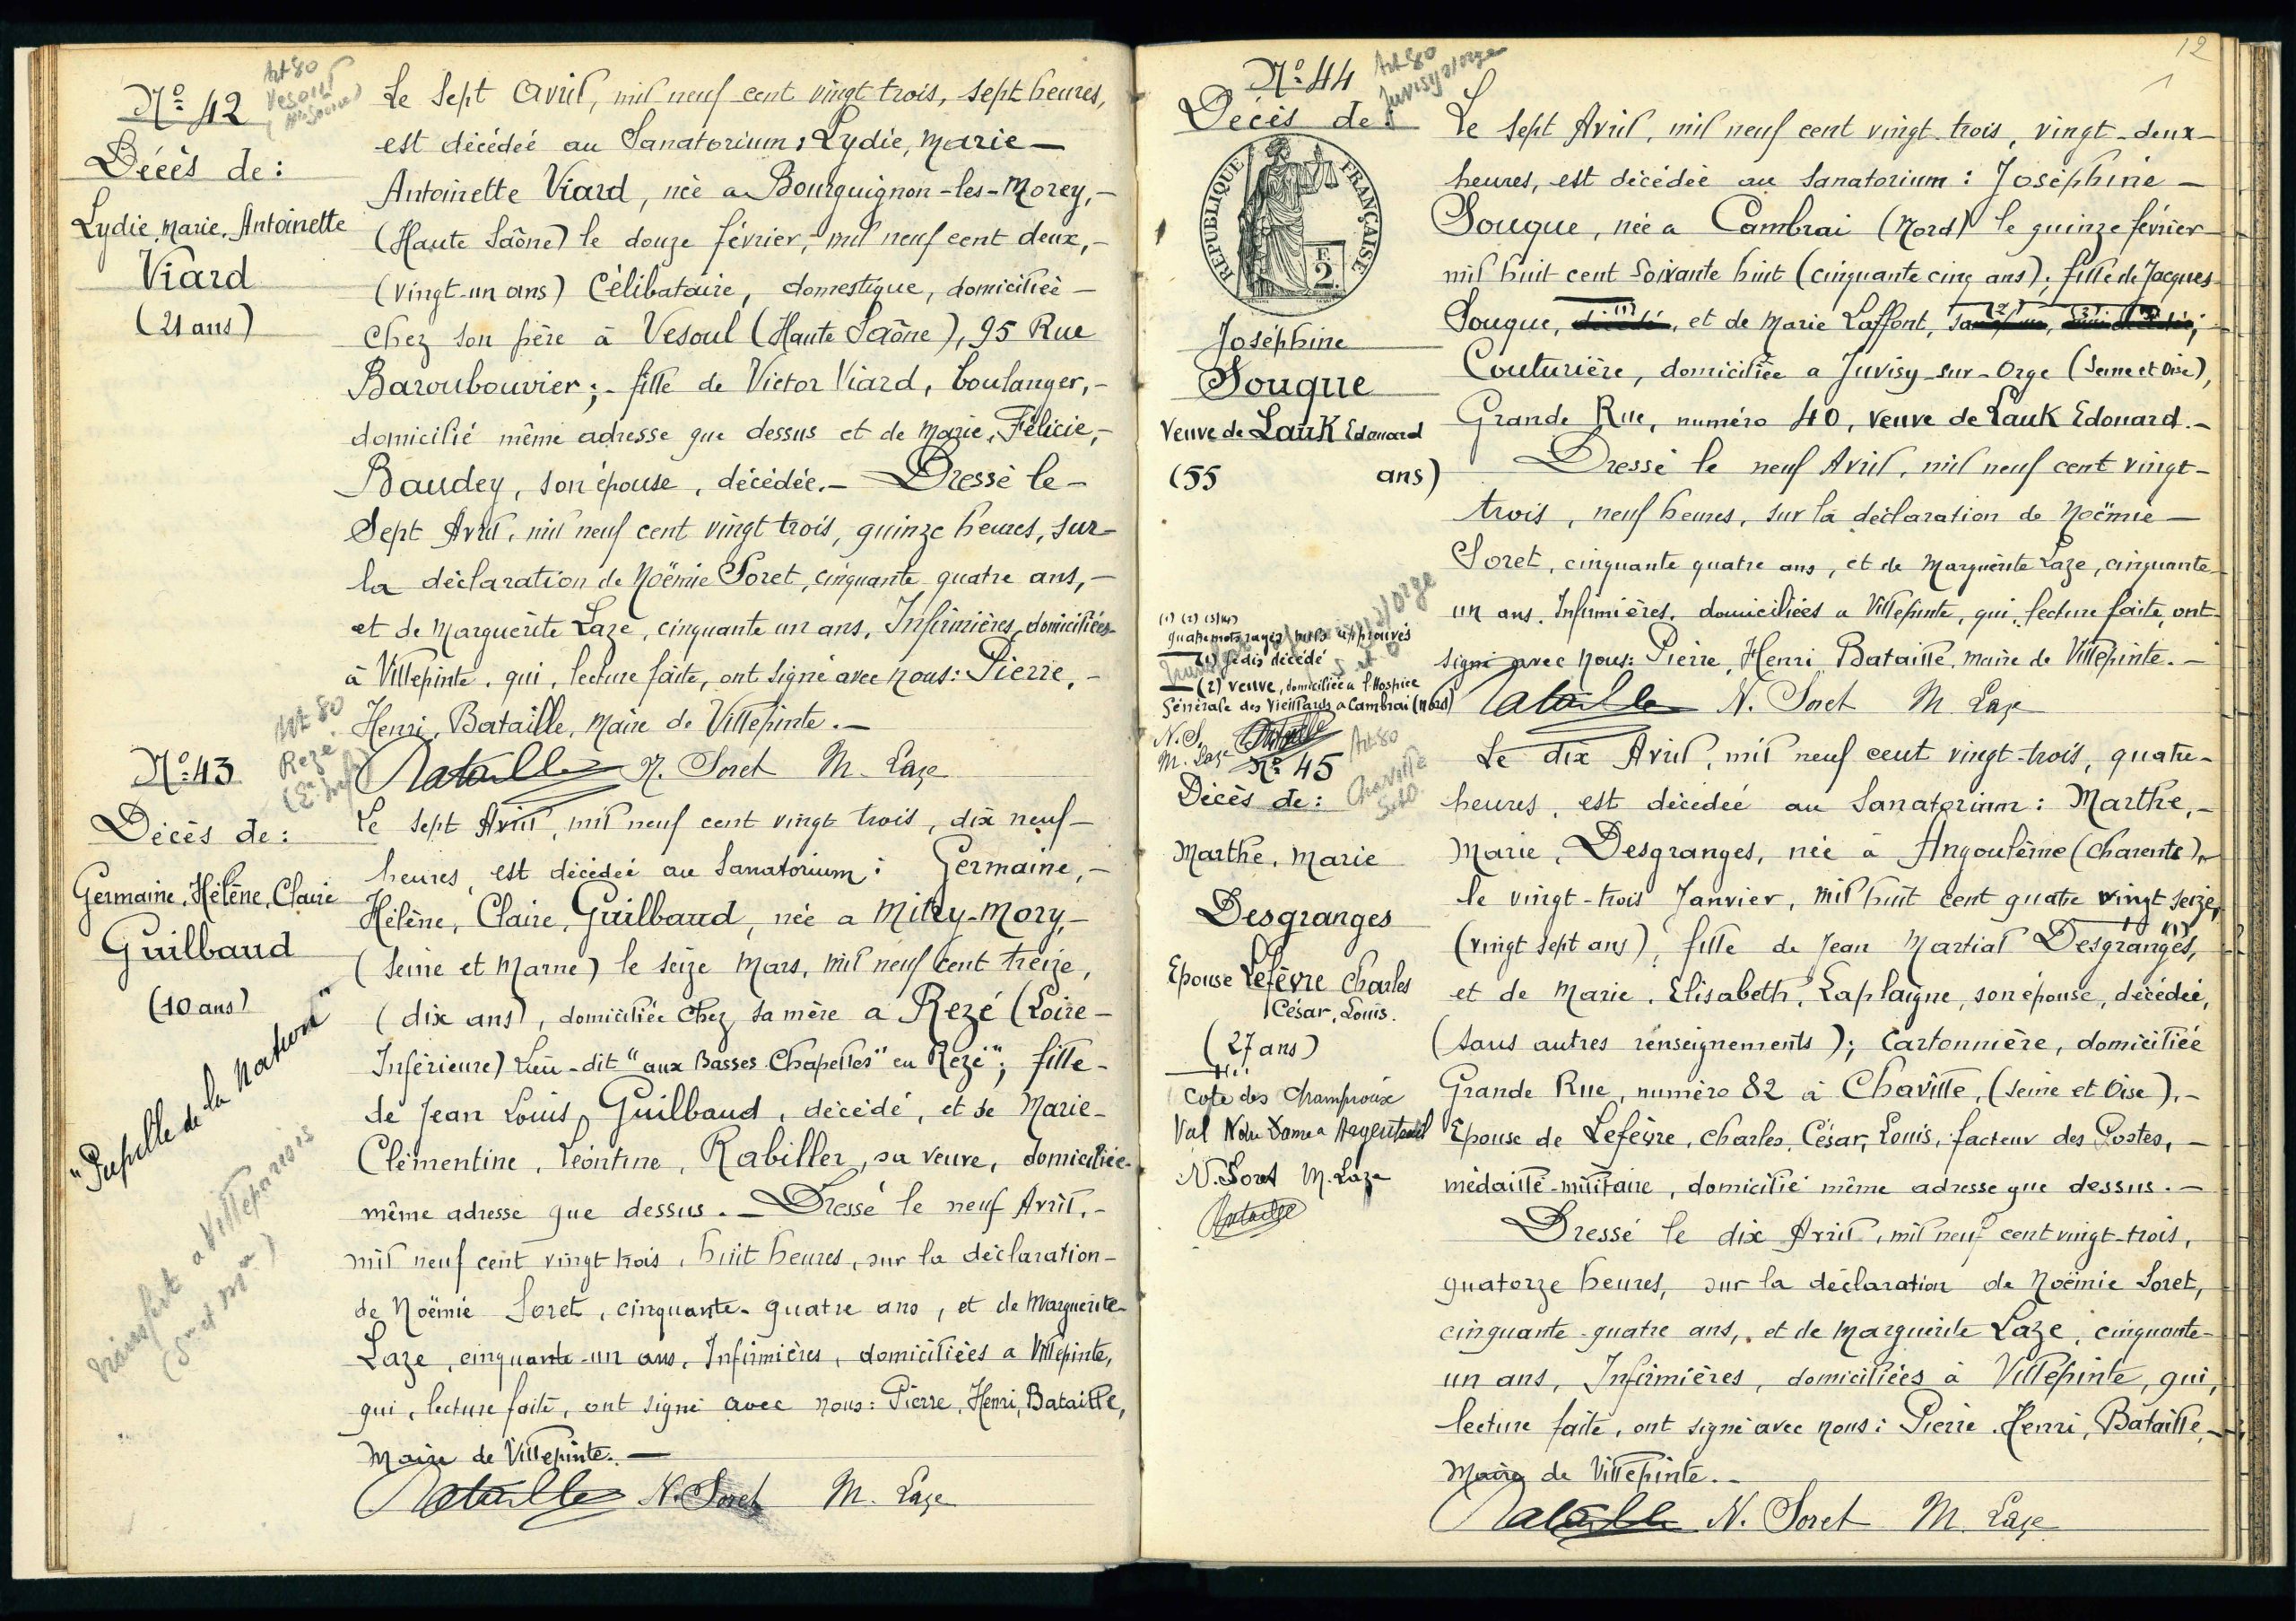 Nº 42
Art 80
Vesoul
(Hte Saône)
Décès de :
Lydie, Marie, Antoinette
Viard
(21 ans)
Le Sept Avril, mil neuf cent vingt trois, sept heures,
est décédée au Sanatorium : Lydie, Marie —
Antoinette Viard, née a Bourguignon-les-Morey, -
(Haute Saône) le douze février, mil neuf cent deux, -
(vingt-un ans) Célibataire, domestique, domiciliée —
chez son père à Vesoul (Haute Saône), 95 Rue
Baroubouvier ; - fille de Victor Viard, boulanger, -
domicilié même adresse que dessus et de Marie, Félicie, -
Baudey, son épouse, décédée. — Dressé le —
Sept Avril, mil neuf cent vingt trois, quinze heures, sur —
la déclaration de Noëmie Soret, cinquante quatre ans, -
et de Marguerite Laze, cinquante un ans, Infirmières, domiciliées
à Villepinte, qui, lecture faite, ont signé avec nous : Pierre, -
Henri, Bataille, Maire de Villepinte. —
Bataille N. Soret M. Laze
Nº 43
Art 80
Rezé
(Décès de :
Germaine, Hélène, Claire
Guilbaud
(10 ans)
"Pupille de la Nation"
transfert a Villeparisis
(Sne et Mne)
Le Sept Avril, mil neuf cent vingt trois, dix neuf —
heures, est décédée au Sanatorium : Germaine, -
Hélène, Claire, Guilbaud, née a Mitry-Mory, -
(Seine et Marne) le seize Mars, mil neuf cent treize,
(dix ans), domiciliée chez sa mère a Rezé (Loire —
Inférieure) Lieu-dit "aux Basses Chapelles" en Rezé" ; fille -
de Jean Louis Guilbaud, décédé, et de Marie -
Clémentine, Léontine, Rabiller, sa veuve, domiciliée -
même adresse que dessus. — Dressé le neuf Avril, -
mil neuf cent vingt trois, huit heures, sur la déclaration -
de Noëmie Soret, cinquante-quatre ans, et de Marguerite -
Laze, cinquante-un ans, Infirmières, domiciliées a Villepinte,
qui, lecture faite, ont signé avec nous : Pierre, Henri, Bataille,
Maire de Villepinte. —
Bataille N. Soret M. Laze
12
Nº 44
Art 80
Juvisy s/orge
Décès de :
RÉPUBLIQUE FRANÇAISE
F
2.
Joséphine
Souque
Veuve de Lauk Edouard
(55 ans)
(1) (2) (3) (4)
quatre mots rayés nuls approuvés
(1) Je dis décédé
— (2) veuve, domiciliée a l'Hospice
Générale des Vieillards a Cambrai (Nord)
N. S.
M. Laze Bataille
Le Sept Avril, mil neuf cent vingt-trois, vingt-deux —
heures, est décédée au Sanatorium : Joséphine —
Souque, née a Cambrai (Nord) le quinze février —
mil huit cent soixante huit (cinquante cinq ans) ; fille de Jacques -
Souque, décédé, et de Marie Laffont,
Couturière, domiciliée a Juvisy-sur-Orge (Seine et Oise),
Grande Rue, numéro 40, veuve de Lauk Edouard. -
Dressé le neuf Avril, mil neuf cent vingt -
trois, neuf heures, sur la déclaration de Noëmie —
Soret, cinquante quatre ans, et de Marguerite Laze, cinquante -
un ans, Infirmières, domiciliées a Villepinte, qui, lecture faite, ont
signé avec nous : Pierre, Henri Bataille, Maire de Villepinte. —
Bataille N. Soret M. Laze
Nº 45
Art 80
Chaville
S et O
Décès de :
Marthe, Marie
Desgranges
Epouse Lefèvre Charles
César, Louis.
(27 ans)
Cote des Champroux
Val Notre Dame a Argenteuil
N. Soret M. Laze
Bataille
Le dix Avril, mil neuf cent vingt-trois, quatre -
heures, est décédée au Sanatorium : Marthe, -
Marie, Desgranges, née à Angoulême (Charente),
le vingt-trois Janvier, mil huit cent quatre vingt seize,
(vingt sept ans), fille de Jean Martial Desgranges,
et de Marie, Elisabeth, Laplaigne, son épouse, décédée,
(sans autres renseignements) ; Cartonnière, domiciliée
Grande Rue, numéro 82 à Chaville, (Seine et Oise), -
Epouse de Lefèvre, Charles, César, Louis, facteur des Postes, —
médaillé-militaire, domicilié même adresse que dessus. —
Dressé le dix Avril, mil neuf cent vingt-trois,
quatorze heures, sur la déclaration de Noëmie Soret,
cinquante-quatre ans, et de Marguerite Laze, cinquante -
un ans, Infirmières, domiciliées à Villepinte, qui,
lecture faite, ont signé avec nous : Pierre, Henri, Bataille, —
Maire de Villepinte. -
Bataille N. Soret M. Laze